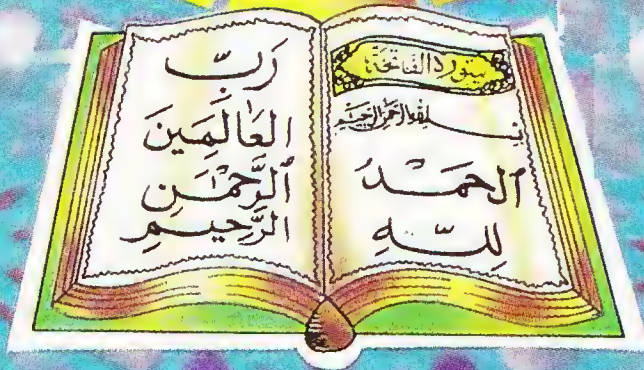 سورة الفاتحة
بسم الله الرحمن الرحيم
ٱلحَمْدُ
لِلّهِ
رَبِّ
العَالَمِينَ
ٱلرَّحْمٰنِ
الرَّحِيمِ